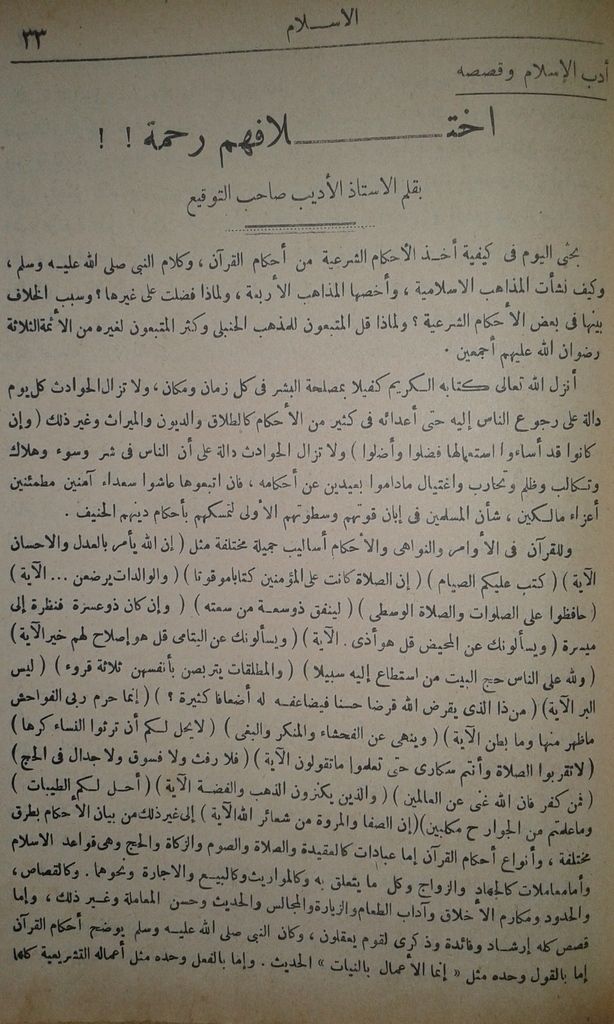 الاســـلام
٣٣
أدب الإسلام وقصصه
اختـــــــلافهم رحمة ! !
بقلم الاستاذ الأديب صاحب التوقيع
بحثى اليوم فى كيفية أخــذ الأحكام الشرعية من أحكام القرآن ، وكلام النبى صلى الله عليــه وسلم ،
وكيف نشأت المذاهب الاسلامية ، وأخصها المذاهب الأربعة ، ولماذا فضلت على غيرها ؟ وسبب الخلاف
بينها فى بعض الأحكام الشرعية ؟ ولماذا قل المتبعون للمذهب الحنبلى وكثر المتبعون لغيره من الأئمة الثلاثة
رضوان الله عليهم أجمعين .
أنزل الله تعالى كتابه الكريم كفيلا بمصلحة البشر فى كل زمان ومكان ، ولا تزال الحوادث كل يوم
دالة على رجوع الناس إليه حتى أعدائه فى كثير من الأحكام كالطلاق والديون والميراث وغير ذلك ( وإن
كانوا قد أساءوا استعمالها فضلوا وأضلوا ) ولا تزال الحوادث دالة على أن الناس فى شر وسوء وهلاك
وتكالب وظلم وتحارب واغتيال ماداموا بعيدين عن أحكامه ، فان اتبعوها عاشوا سعداء آمنين مطمئنين
أعزاء مالكين ، شأن المسلمين فى إبان قوتهم وسطوتهم الأولى لتمسكهم بأحكام دينهم الحنيف .
وللقرآن فى الأوامر والنواهى والأحكام أساليب جميلة مختلفة مثل ( إن الله يأمر بالعدل والاحسان
الآية ) ( كتب عليكم الصيام ) ( إن الصلاة كانت على المؤمنين كتابا موقوتا ) ( والوالدات يرضعن ... الآية )
( حافظوا على الصلوات والصلاة الوسطى ) ( لينفق ذو سعــة من سعته ) ( وإن كان ذو عسرة فنظرة إلى
ميسرة ( ويسألونك عن المحيض قل هو أذى . الآية ) ( ويسألونك عن اليتامى قل هو إصلاح لهم خير الآية )
( ولله على الناس حج البيت من استطاع إليه سبيلا ) ( والمطلقات يتربصن بأنفسهن ثلاثة قروء ) ( ليس
البر الآية ) ( من ذا الذى يقرض الله قرضا حسنا فيضاعفــه له أضعافا كثيرة ؟ ) ( إنما حرم ربى الفواحش
ماظهر منها وما بطن الآية ) ( وينهى عن الفحشاء والمنكر والبغى ) ( لايحل لكم أن ترثوا النساء كرها )
( لاتقربوا الصلاة وأنتم سكارى حتى تعلموا ماتقولون الآية ) ( فلا رفث ولا فسوق ولا جدال فى الحج )
( فمن كفر فان الله غنى عن العالمين ) ( والذين يكنزون الذهب والفضــة الآية ) ( أحــل لكم الطيبات )
وماعلمتم من الجوارح مكلبين ) ( إن الصفا والمروة من شعائر الله الآية ) إلى غير ذلك من بيان الأحكام بطرق
مختلفة ، وأنواع أحكام القرآن إما عبادات كالعقيدة والصلاة والصوم والزكاة والحج وهى قواعد الاسلام
وأما معاملات كالجهاد والزواج وكل ما يتعلق به وكالمواريث وكالبيــع والاجارة ونحوها . وكالقصاص ،
والحدود ومكارم الأخلاق وآداب الطعام والزيارة والمجالس والحديث وحسن المعاملة وغــير ذلك ، وإما
قصص كله إرشــاد وفائدة وذكرى لقوم يعقلون ، وكان النبى صلى الله عليــه وسلم يوضح أحكام القرآن
إما بالقول وحده مثل « إنما الأعمال بالنيات » الحديث . وإما بالفعل وحده مثل أعماله التشريعية كلها